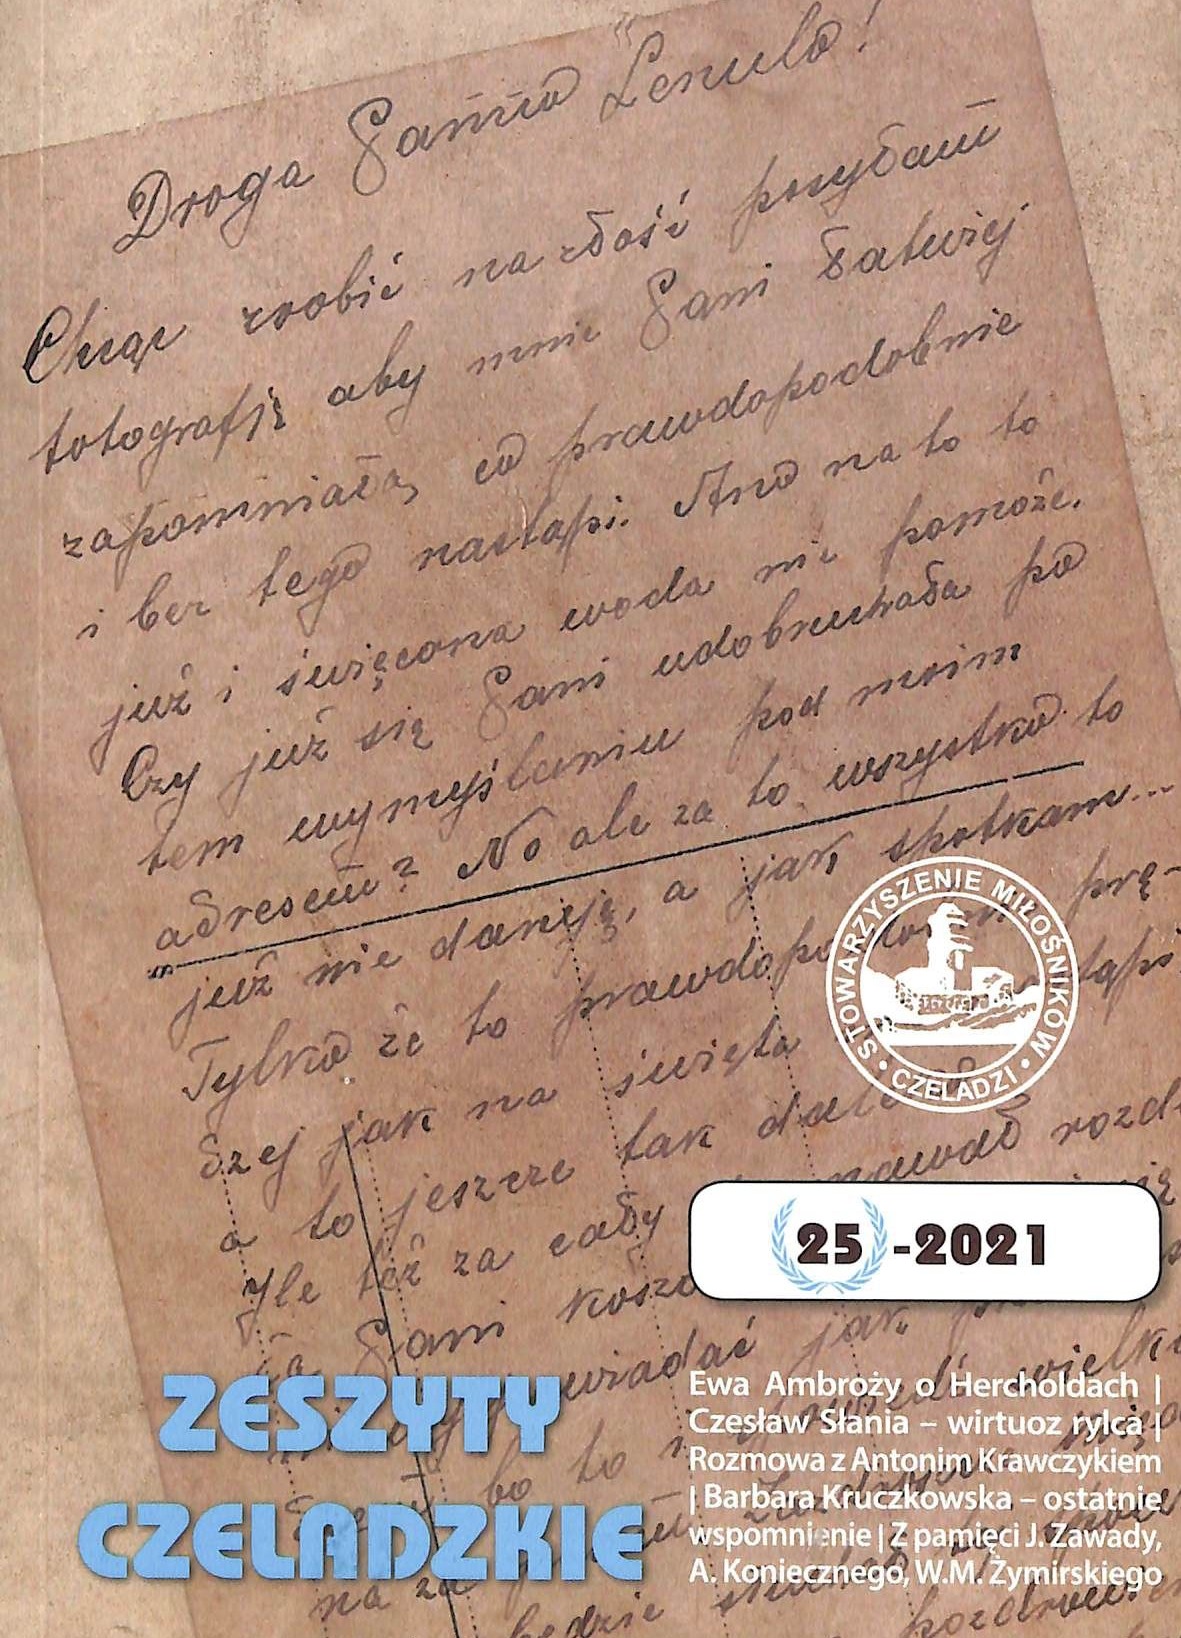 Droga Panno Lenulo!
Chcąc zrobić na złość posyłam
fotografję aby mnie Pani łatwiej
zapomniała, co prawdopodobnie
i bez tego nastąpi. Ano na to to
już i święcona woda nie pomoże.
Czy już się Pani udobruchała po
tem wymyślaniu pod moim
adresem? No ale za to wszystko to
już nie daruję, a jak spotkam...
Tylko że to prawdopo prę-
jak na święta
a to jeszcze tak
Ile też za cały rozd
Pani
jak
bo to i
na za
STOWARZYSZENIE MIŁOŚNIKÓW
• CZELADZI •
25 -2021
ZESZYTY
CZELADZKIE
Ewa Ambroży o Hercholdach |
Czesław Słania – wirtuoz rylca |
Rozmowa z Antonim Krawczykiem
| Barbara Kruczkowska – ostatnie
wspomnienie | Z pamięci J. Zawady,
A. Koniecznego, W.M. Żymirskiego